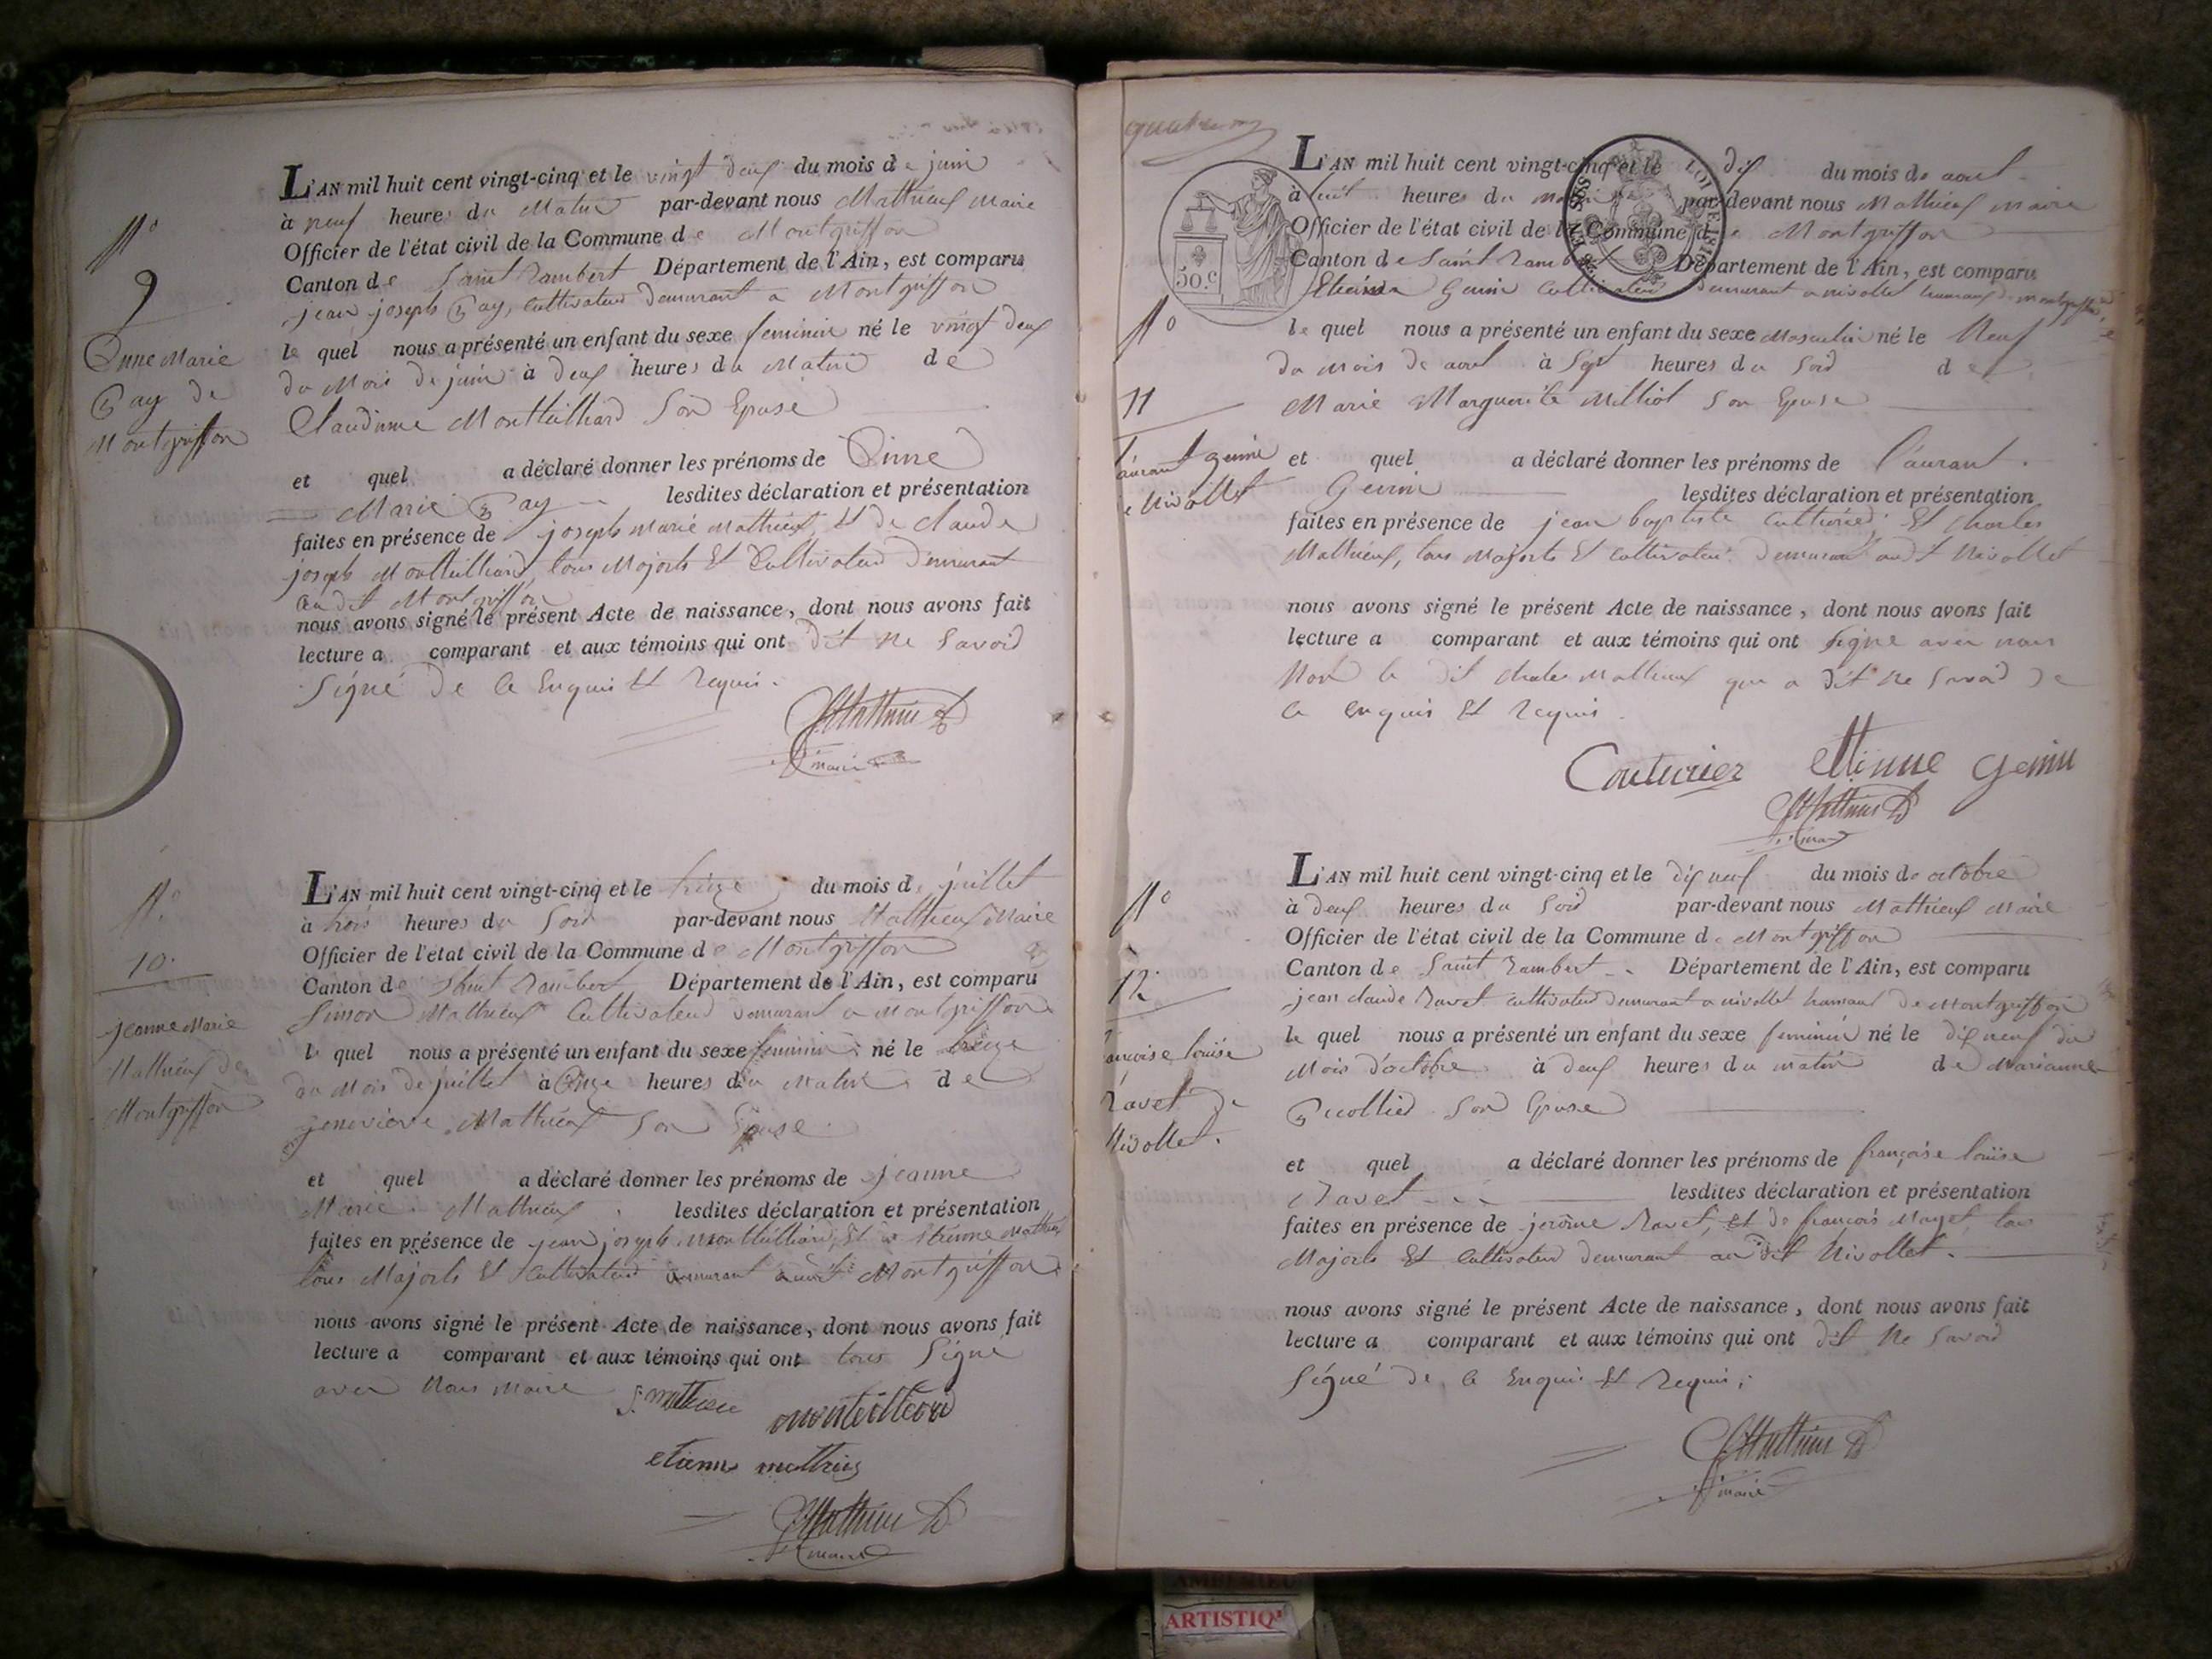 N°
9
Anne Marie
Gay de
Montgriffon
L'AN mil huit cent vingt-cinq et le vingt deux du mois de juin
à neuf heures du Matin par-devant nous Mathieux Maire
Officier de l'état civil de la Commune de Montgriffon
Canton de Saint Rambert Département de l'Ain, est comparu
jean joseph Gay, cultivateur demeurant a Montgriffon
le quel nous a présenté un enfant du sexe feminin né le vingt deux
du Mois de juin à deux heures du Matin de
Claudinne Montteilliard Son Epuse
et quel a déclaré donner les prénoms de Anne
Marie Gay lesdites déclaration et présentation
faites en présence de joseph Marie Mathieux, Et de claude
joseph Montteilliard, tous Majorts Et Cultivateur demeurant
au dit Montgriffon
nous avons signé le présent Acte de naissance, dont nous avons fait
lecture a comparant et aux témoins qui ont dit ne Savoir
Signé de Ce Enquis Et Requis.
maire
N°
10.
jeanne Marie
Mathieux de
Montgriffon
L'AN mil huit cent vingt-cinq et le treize du mois de juillet
à trois heures du Soir par-devant nous Mathieux Maire
Officier de l'état civil de la Commune de Montgriffon
Canton de Saint Rambert Département de l'Ain, est comparu
Simon Mathieux Cultivateur demeurant a Montgriffon
le quel nous a présenté un enfant du sexe feminin né le treize
du Mois de juillet à Onze heures du Matin de
genevieve Mathieux Son Epuse
et quel a déclaré donner les prénoms de jeanne
Marie Mathieux lesdites déclaration et présentation
faites en présence de jean joseph Montteilliard, Et Etienne Mathieux
tous Majorts Et Cultivateur demeurant audit Montgriffon
nous avons signé le présent Acte de naissance, dont nous avons fait
lecture a comparant et aux témoins qui ont tous Signé
avec Nous Maire
S. mathieu monteilleard
etienne mathieu
maire
50.c
N°
11
Laurant genin
de Nivollet
L'AN mil huit cent vingt-cinq et le dix du mois de aout
à huit heures du matin par-devant nous Mathieux maire
Officier de l'état civil de la Commune de Montgriffon
Canton de Saint Rambert Département de l'Ain, est comparu
Etienne Genin Cultivateur demeurant a nivollet hameau de montgriffon
le quel nous a présenté un enfant du sexe Masculin né le Neuf
du mois de aout à Sept heures du Soir de
Marie Marguerite Milliot Son Epuse
et quel a déclaré donner les prénoms de Laurant
Genin lesdites déclaration et présentation
faites en présence de jean baptiste Et charles
Mathieux, tous Majorts Et Cultivateur demeurant audit Nivollet
nous avons signé le présent Acte de naissance, dont nous avons fait
lecture a comparant et aux témoins qui ont Signé avec nous
Non le dit charles Mathieux qui a dit ne Savoir de
Ce enquis Et Requis.
Couturier Etienne Genin
N°
12.
françoise louise
Ravet de
Nivollet.
L'AN mil huit cent vingt-cinq et le dix neuf du mois de octobre
à deux heures du Soir par-devant nous Mathieux Maire
Officier de l'état civil de la Commune de Montgriffon
Canton de Saint Rambert Département de l'Ain, est comparu
jean claude Ravet cultivateur demeurant a nivollet hameau de Montgriffon
le quel nous a présenté un enfant du sexe feminin né le dix neuf du
Mois d'octobre à deux heures du matin de Marianne
Son Epuse
et quel a déclaré donner les prénoms de françoise louise
Ravet lesdites déclaration et présentation
faites en présence de jerôme Ravet, Et de françois Mayet, tous
Majorts Et Cultivateur demeurant au dit Nivollet.
nous avons signé le présent Acte de naissance, dont nous avons fait
lecture a comparant et aux témoins qui ont dit Ne Savoir
Signé de Ce Enquis Et Requis;
maire
ARTISTIQ